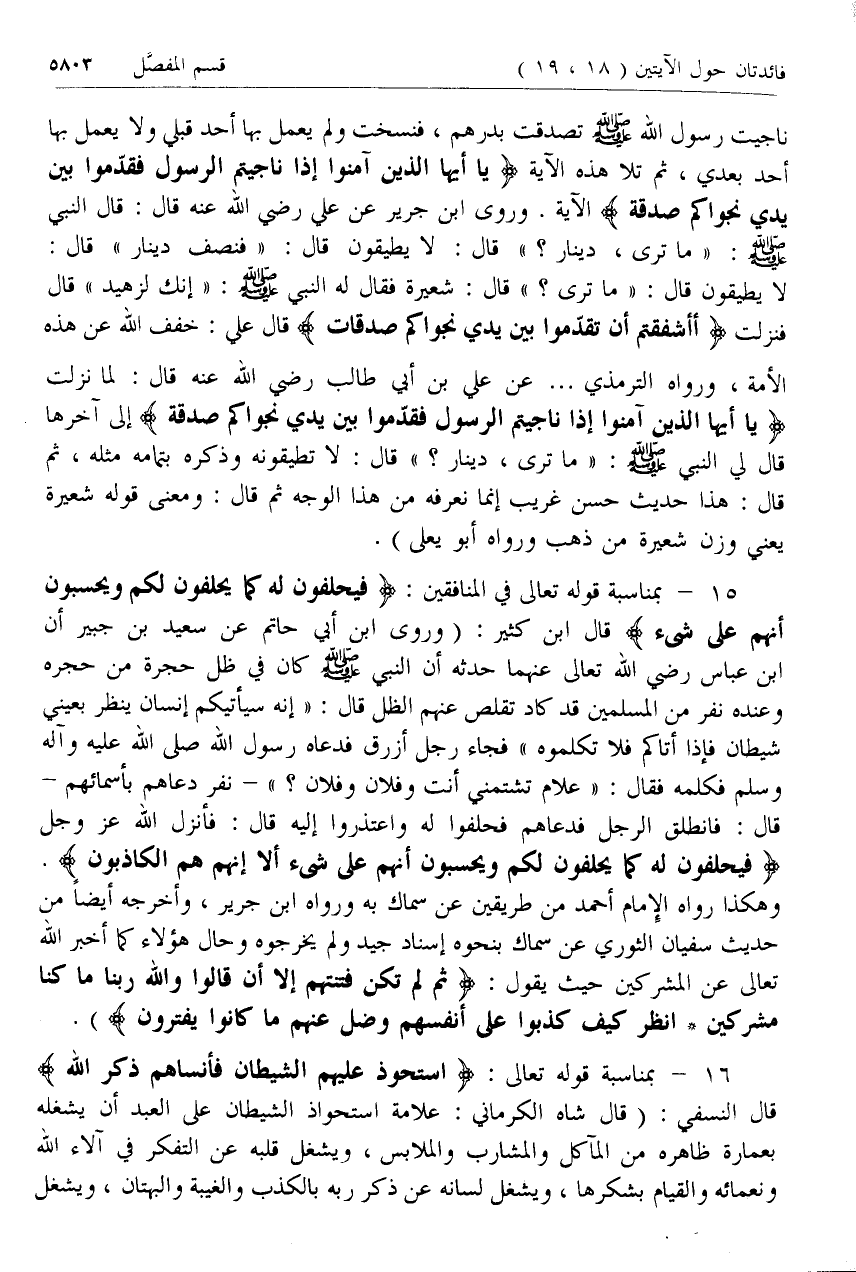 فائدتان حول الآيتين ( ١٨ ، ١٩ ) قسم المفصَّل ٥٨٠٣
ناجيت رسول الله ﷺ تصدقت بدرهم ، فنسخت ولم يعمل بها أحد قبلي ولا يعمل بها
أحد بعدي ، ثم تلا هذه الآية ﴿ يا أيها الذين آمنوا إذا ناجيتم الرسول فقدّموا بين
يدي نجواكم صدقة ﴾ الآية . وروى ابن جرير عن علي رضي الله عنه قال : قال النبي
ﷺ : « ما ترى ، دينار ؟ » قال : لا يطيقون قال : « فنصف دينار » قال :
لا يطيقون قال : « ما ترى ؟ » قال : شعيرة فقال له النبي ﷺ : « إنك لزهيد » قال
فنزلت ﴿ أأشفقتم أن تقدّموا بين يدي نجواكم صدقات ﴾ قال علي : خفف الله عن هذه
الأمة ، ورواه الترمذي ... عن علي بن أبي طالب رضي الله عنه قال : لما نزلت
﴿ يا أيها الذين آمنوا إذا ناجيتم الرسول فقدّموا بين يدي نجواكم صدقة ﴾ إلى آخرها
قال لي النبي ﷺ : « ما ترى ، دينار ؟ » قال : لا تطيقونه وذكره بتمامه مثله ، ثم
قال : هذا حديث حسن غريب إنما نعرفه من هذا الوجه ثم قال : ومعنى قوله شعيرة
يعني وزن شعيرة من ذهب ورواه أبو يعلى ) .
١٥ – بمناسبة قوله تعالى في المنافقين : ﴿ فيحلفون له كما يحلفون لكم ويحسبون
أنهم على شيء ﴾ قال ابن كثير : ( وروى ابن أبي حاتم عن سعيد بن جبير أن
ابن عباس رضي الله تعالى عنهما حدثه أن النبي ﷺ كان في ظل حجرة من حجره
وعنده نفر من المسلمين قد كاد تقلص عنهم الظل قال : « إنه سيأتيكم إنسان ينظر بعيني
شيطان فإذا أتاكم فلا تكلموه » فجاء رجل أزرق فدعاه رسول الله صلى الله عليه وآله
وسلم فكلمه فقال : « علام تشتمني أنت وفلان وفلان ؟ » – نفر دعاهم بأسمائهم –
قال : فانطلق الرجل فدعاهم فحلفوا له واعتذروا إليه قال : فأنزل الله عز وجل
﴿ فيحلفون له كما يحلفون لكم ويحسبون أنهم على شيء ألا إنهم هم الكاذبون ﴾ .
وهكذا رواه الإمام أحمد من طريقين عن سماك به ورواه ابن جرير ، وأخرجه أيضاً من
حديث سفيان الثوري عن سماك بنحوه إسناد جيد ولم يخرجوه وحال هؤلاء كما أخبر الله
تعالى عن المشركين حيث يقول : ﴿ ثم لم تكن فتنتهم إلا أن قالوا والله ربنا ما كنا
مشركين * انظر كيف كذبوا على أنفسهم وضل عنهم ما كانوا يفترون ﴾ ) .
١٦ – بمناسبة قوله تعالى : ﴿ استحوذ عليهم الشيطان فأنساهم ذكر الله ﴾
قال النسفي : ( قال شاه الكرماني : علامة استحواذ الشيطان على العبد أن يشغله
بعمارة ظاهره من المآكل والمشارب والملابس ، ويشغل قلبه عن التفكر في آلاء الله
ونعمائه والقيام بشكرها ، ويشغل لسانه عن ذكر ربه بالكذب والغيبة والبهتان ، ويشغل